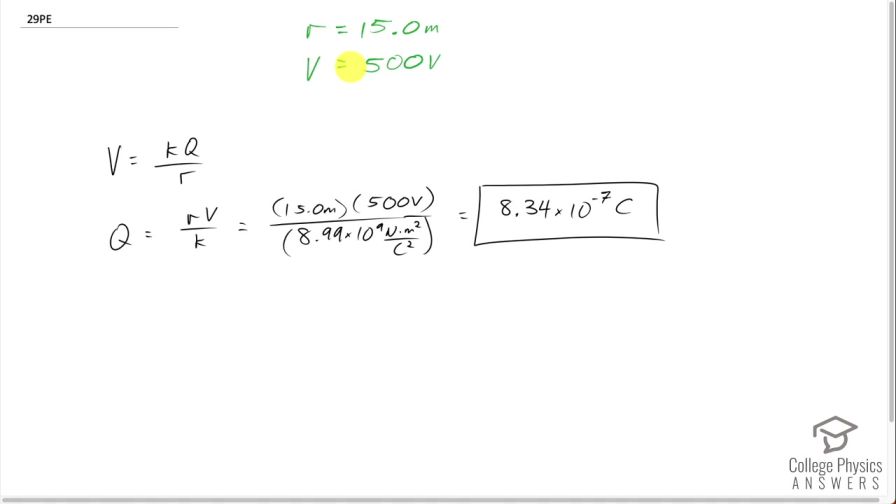 29PE
r = 15.0m
V = 500V
V = kQ/r
Q = rV/k = (15.0m)(500V)/(8.99×10⁹ N·m²/C²) = 8.34×10⁻⁷ C
College Physics
ANSWERS